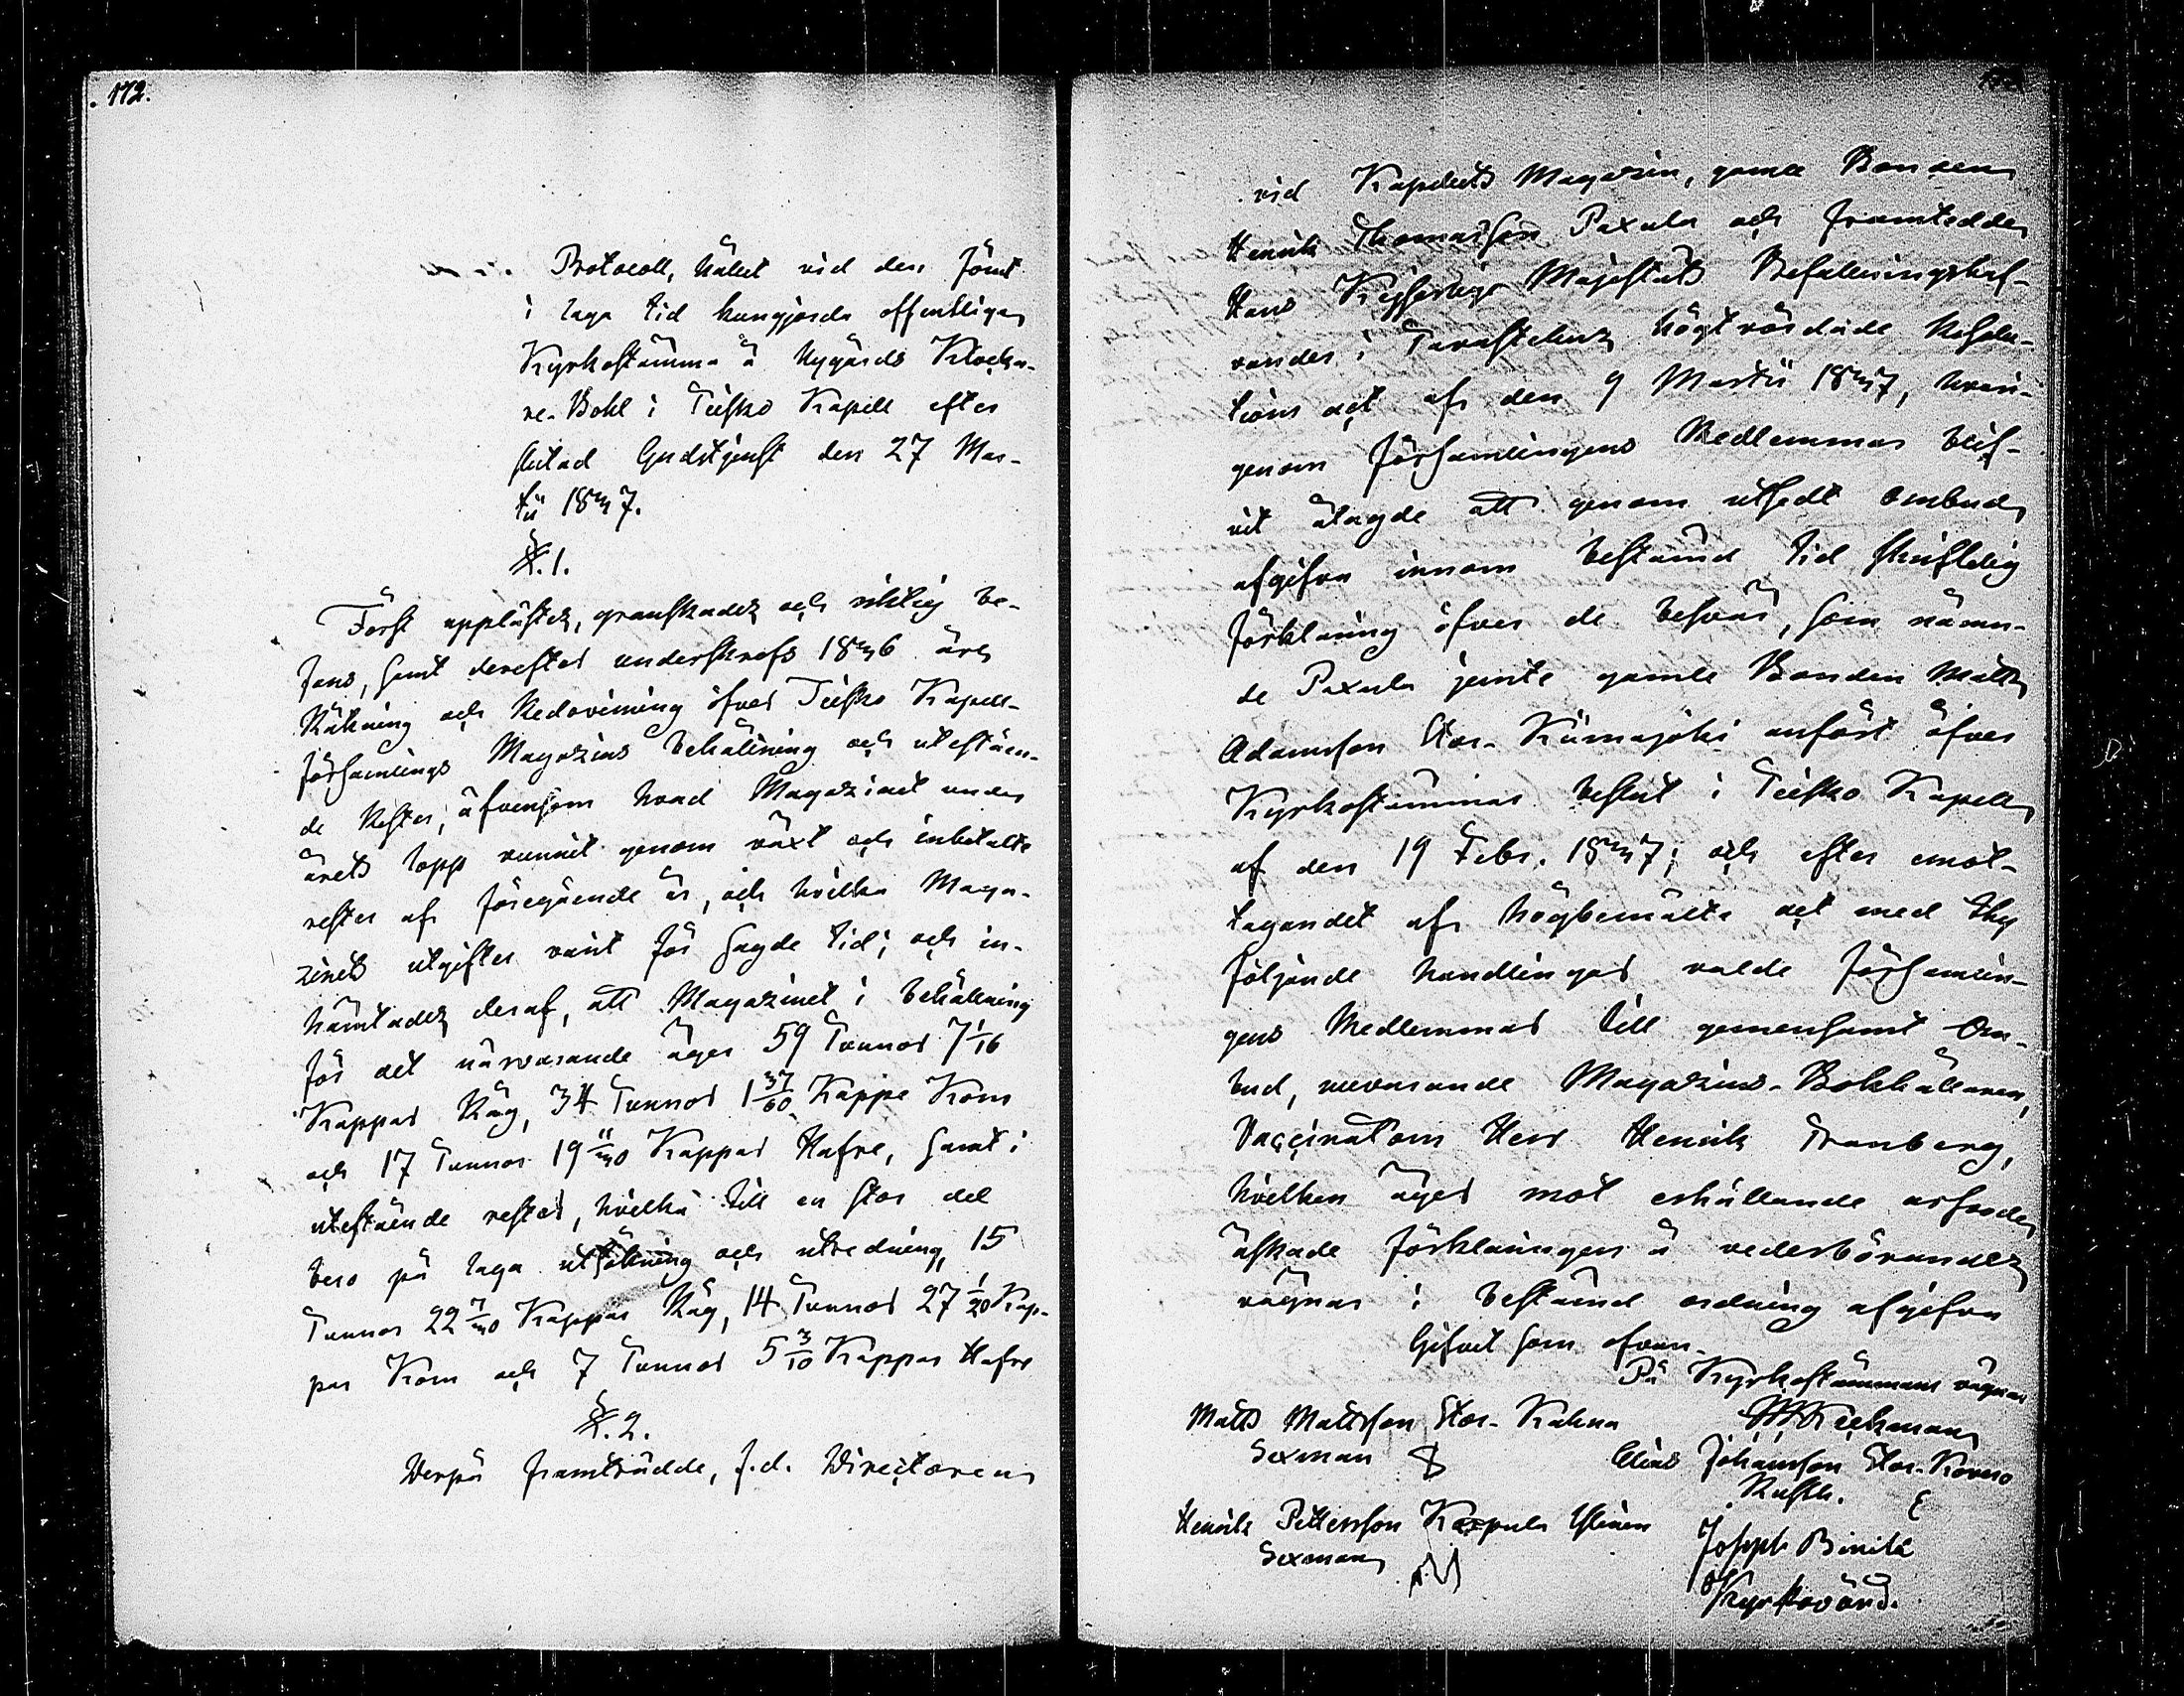 172.
Protocoll, hållit vid den sömt
i laga tid kungjorda offentliga
Kyrkostämma å Nygårds Klocka-
re-Bohl i Teisko Kapell efter
slutad Gudstjenst den 27 Mar-
tii 1847.
§.1.
Först upplästes, granskades och riktig be-
fans, samt derefter underskrefs 1846 års
Räkning och Redovisning öfver Teisko Kapell-
församlings Magazins behållning och utestån-
de Rester, äfvensom hvad Magazinet under
årets lopp vunnit genom växt och inbetalte
rester af föregående år, och hvilka Maga-
zinets utgifter varit för sagde tid; och in-
hämtades deraf, att Magazinet i behållning
för det närvarande äger 59 Tunnor 7 1/16
Kappar Råg, 34 Tunnor 1 37/60 Kappe Korn
och 17 Tunnor 19 11/40 Kappar Hafre, samt i
utestående rester, hvilka till en stor del
bero på laga utsökning och utredning, 15
Tunnor 22 7/40 Kappar Råg, 14 Tunnor 27 1/20 Kap-
par Korn och 7 Tunnor 5 3/10 Kappar Hafre
§.2.
Derpå framträdde, f.d. Directoren
vid Kapellets Magazin, gamle Bonden
Henrik Thomasson Paxula och framtedde
Hans Kejserliga Majestäts Befallningshaf-
vandes i Tavastehus högtvördade Resolu-
tions act af den 9 Martii 1847, hvari-
genom Församlingens Medlemmar blif-
vit ålagde att genom utsedt ombud
afgifva innom bestämd tid skriftelig
förklaring öfver de besvär, som nämn-
de Paxula jemte gamle Bonden Matts
Adamsson Stor-Kiimajoki anfört öfver
Kyrkostämmas beslut i Teisko Kapell
af den 19 Febr. 1847; och efter emot-
tagandet af högbemälte act med thy
följande handlingar valde Församlin-
gens Medlemmar till gemensamt Om-
bud, nuvarande Magazins-Bokhållaren,
Vaccinatorn Herr Henrik Tranberg,
hvilken äger mot erhållande arfvode
äskade förklaringen å vederbörandes
vägnar i bestämd ordning afgifva
Gifvet som ofvan.
På Kyrkostämmans vägnar
Matts Mattsson Stor-Kahna
Sexman
Elias Johansson Stor-Kovero
Rusth.
Henrik Pettersson
Sexman
Joseph
Kyrkovärd.